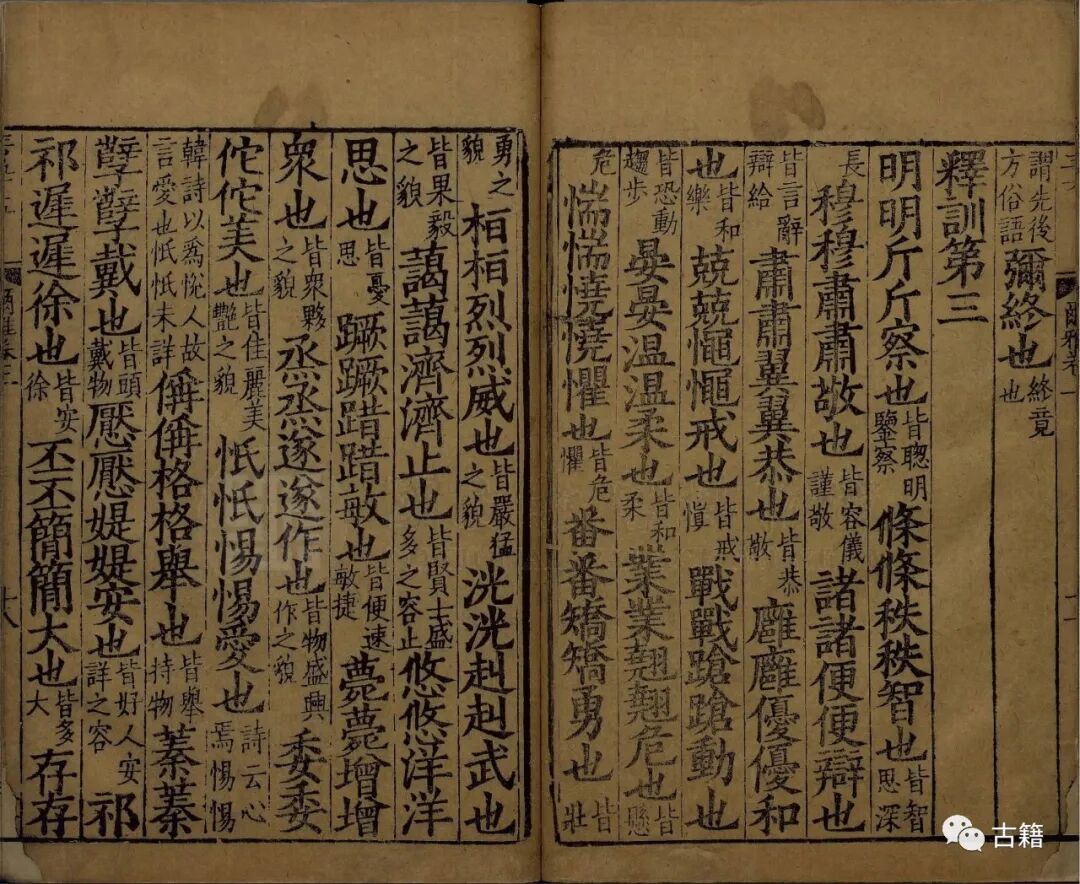 謂先後方俗語彌終也終竟也
釋訓第三
明明斤斤察也皆聰明鑒察條條秩秩智也皆智思深
長穆穆肅肅敬也皆容儀謹敬諸諸便便辯也
皆言辭辯給肅肅翼翼恭也皆恭敬廱廱優優和
也皆和樂兢兢憴憴戒也皆戒愼戰戰蹌蹌動也
皆恐動趨步晏晏温温柔也皆和柔業業翹翹危也皆懸
危惴惴憢憢懼也皆危懼番番矯矯勇也皆壯
勇之貌桓桓烈烈威也皆嚴猛之貌洸洸赳赳武也
皆果毅之貌藹藹濟濟止也皆賢士盛多之容止悠悠洋洋
思也皆憂思蹶蹶踖踖敏也皆便速敏捷薨薨增增
衆也皆衆夥之貌烝烝遂遂作也皆物盛興作之貌委委
佗佗美也皆佳麗美豔之貌忯忯惕惕愛也詩云心焉惕惕
韓詩以爲悅人故言愛也忯忯未詳偁偁格格舉也皆舉持物蓁蓁
孼孼戴也皆頭戴物懕懕媞媞安也皆好人安詳之容祁
祁遲遲徐也皆安徐丕丕簡簡大也皆多大存存
爾雅卷
古籍